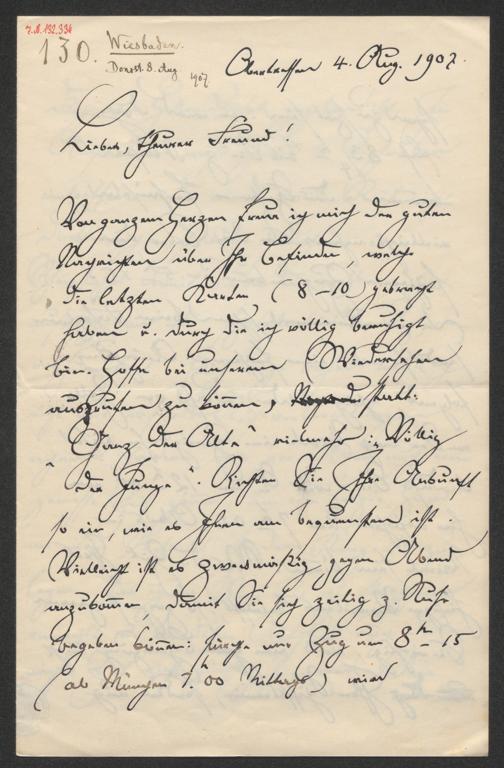 J.N. 132.336
130. Wiesbaden.
Donnst. 8. Aug 1907
4. Aug. 1907.
Lieber, theurer Freund!
Von ganzem Herzen freue ich mich der guten
Nachrichten über Ihr Befinden, welche
die letzten Karten (8–10) gebracht
haben u. durch die ich völlig beruhigt
bin. Hoffe bei unserem Wiedersehen
ausrufen zu können, statt:
"Ganz der Alte" vielmehr: Völlig
"der Junge". Richten Sie Ihre Ankunft
so ein, wie es Ihnen am bequemsten ist.
Vielleicht ist es zweckmäßig gegen Abend
anzukommen, damit Sie sich zeitig z. Ruhe
begeben können: Zug um 8h – 15
(ab München 7.h 00 Mittags) wird